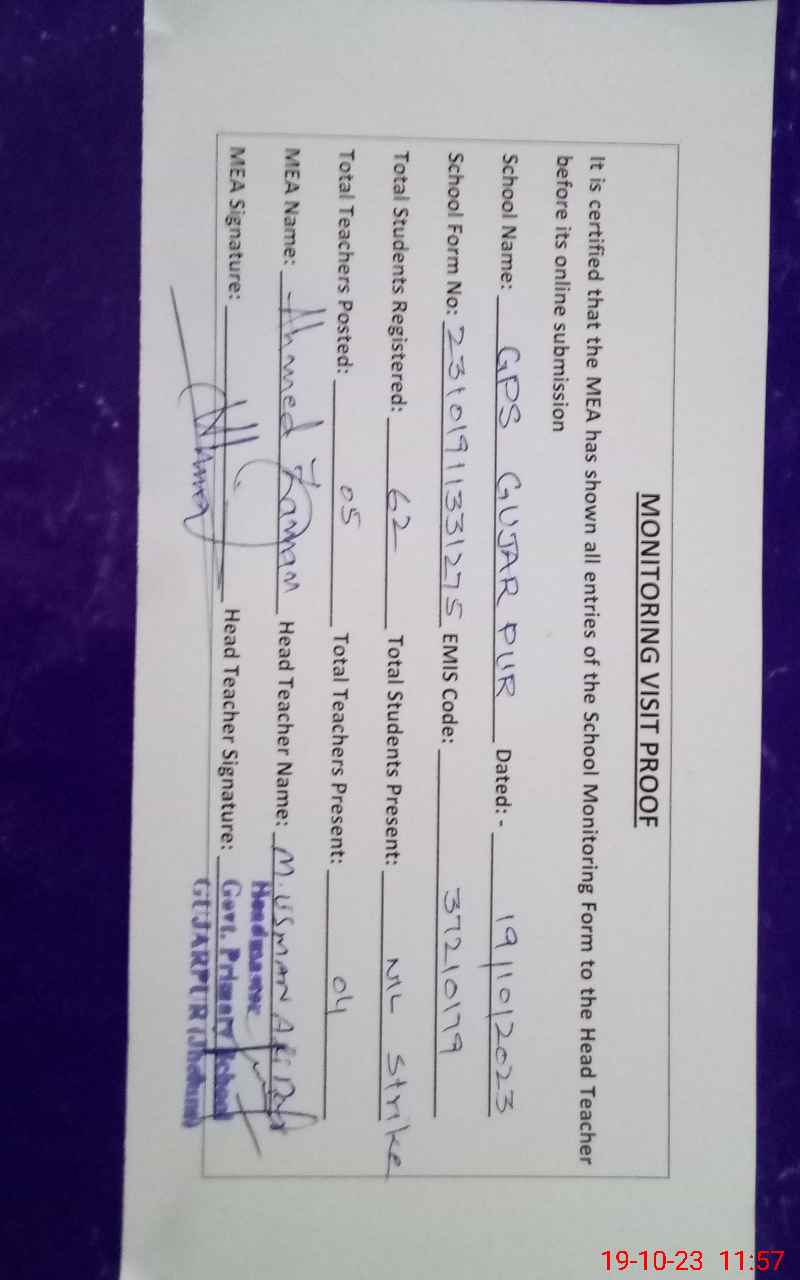 MONITORING VISIT PROOF
It is certified that the MEA has shown all entries of the School Monitoring Form to the Head Teacher
before its online submission
School Name: GPS GUJAR PUR Dated:- 19/10/2023
School Form No: 23101911331275 EMIS Code: 37210179
Total Students Registered: 62 Total Students Present: NIL Strike
Total Teachers Posted: 05 Total Teachers Present: 04
MEA Name: Ahmed Zaman Head Teacher Name: M. USMAN
MEA Signature: Head Teacher Signature:
Headmaster
Govt. Primary School
GUJARPUR (Jhelum)
19-10-23 11:57